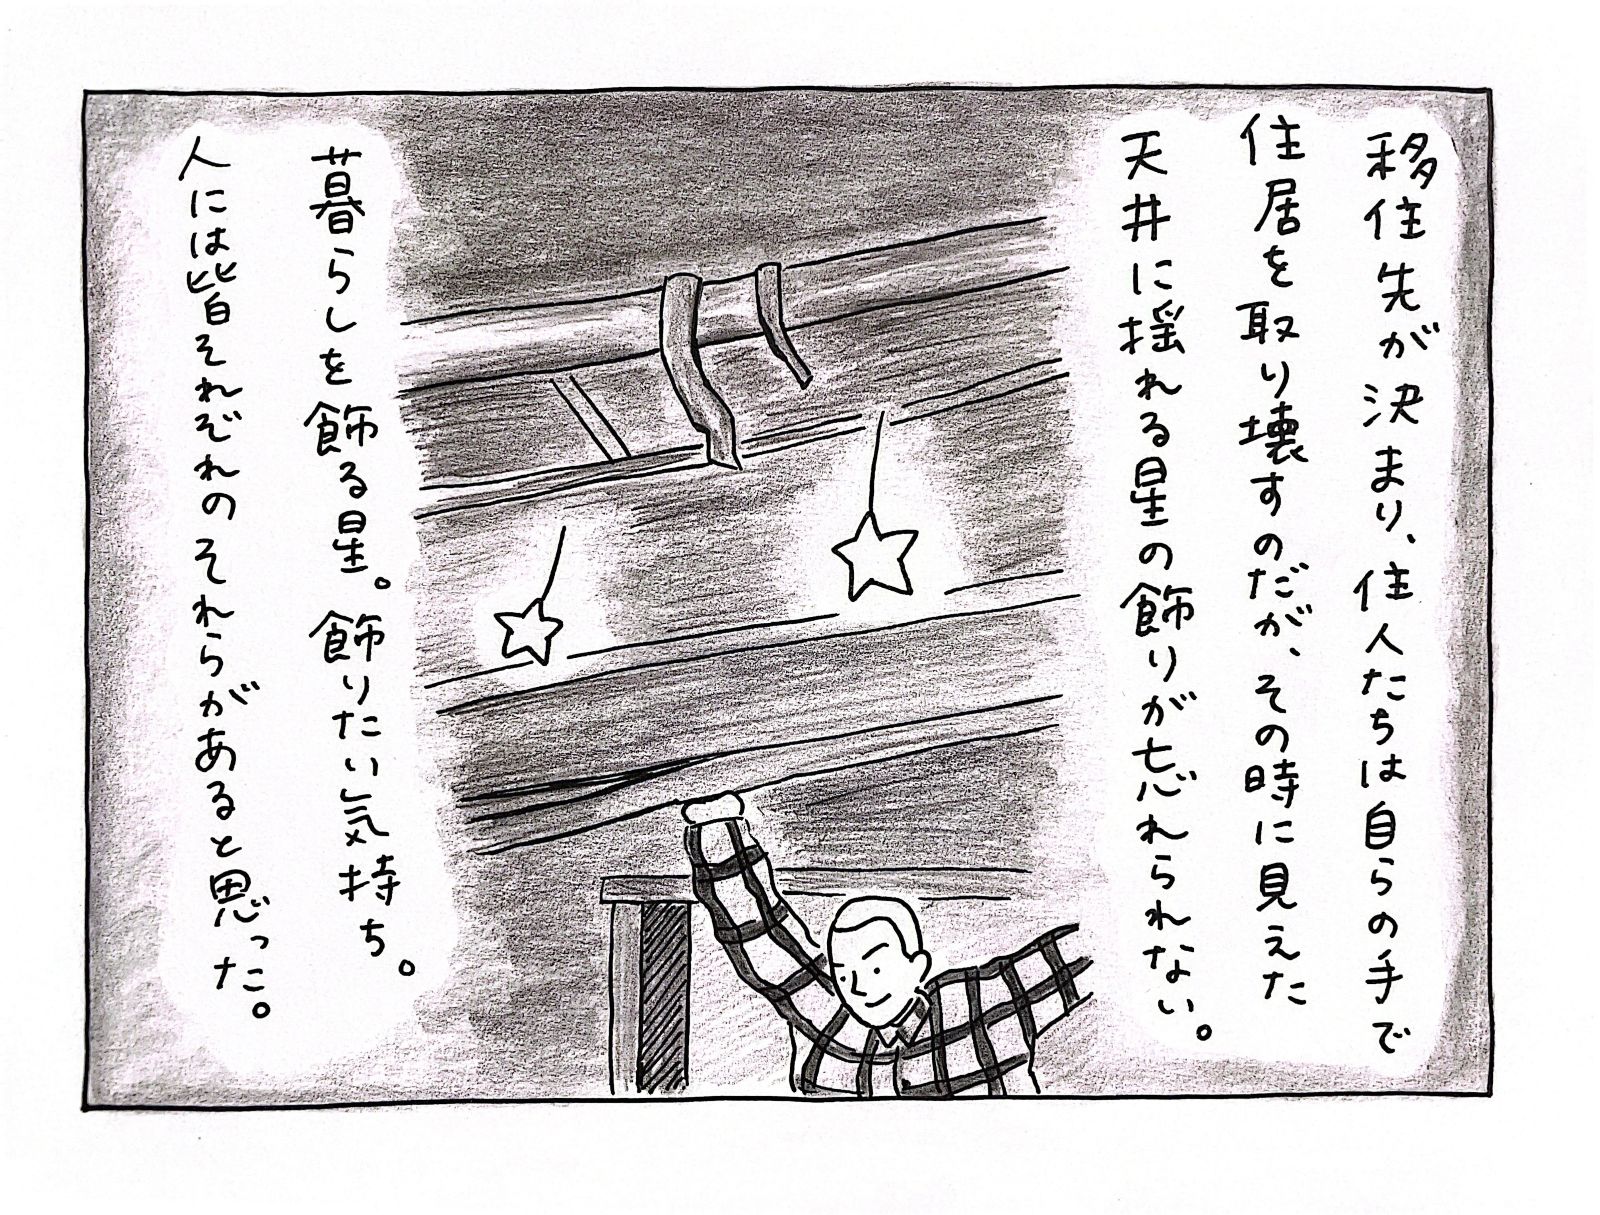 移住先が決まり、住人たちは自らの手で
住居を取り壊すのだが、その時に見えた
天井に揺れる星の飾りが忘れられない。
暮らしを飾る星。飾りたい気持ち。
人には皆それぞれのそれらがあると思った。